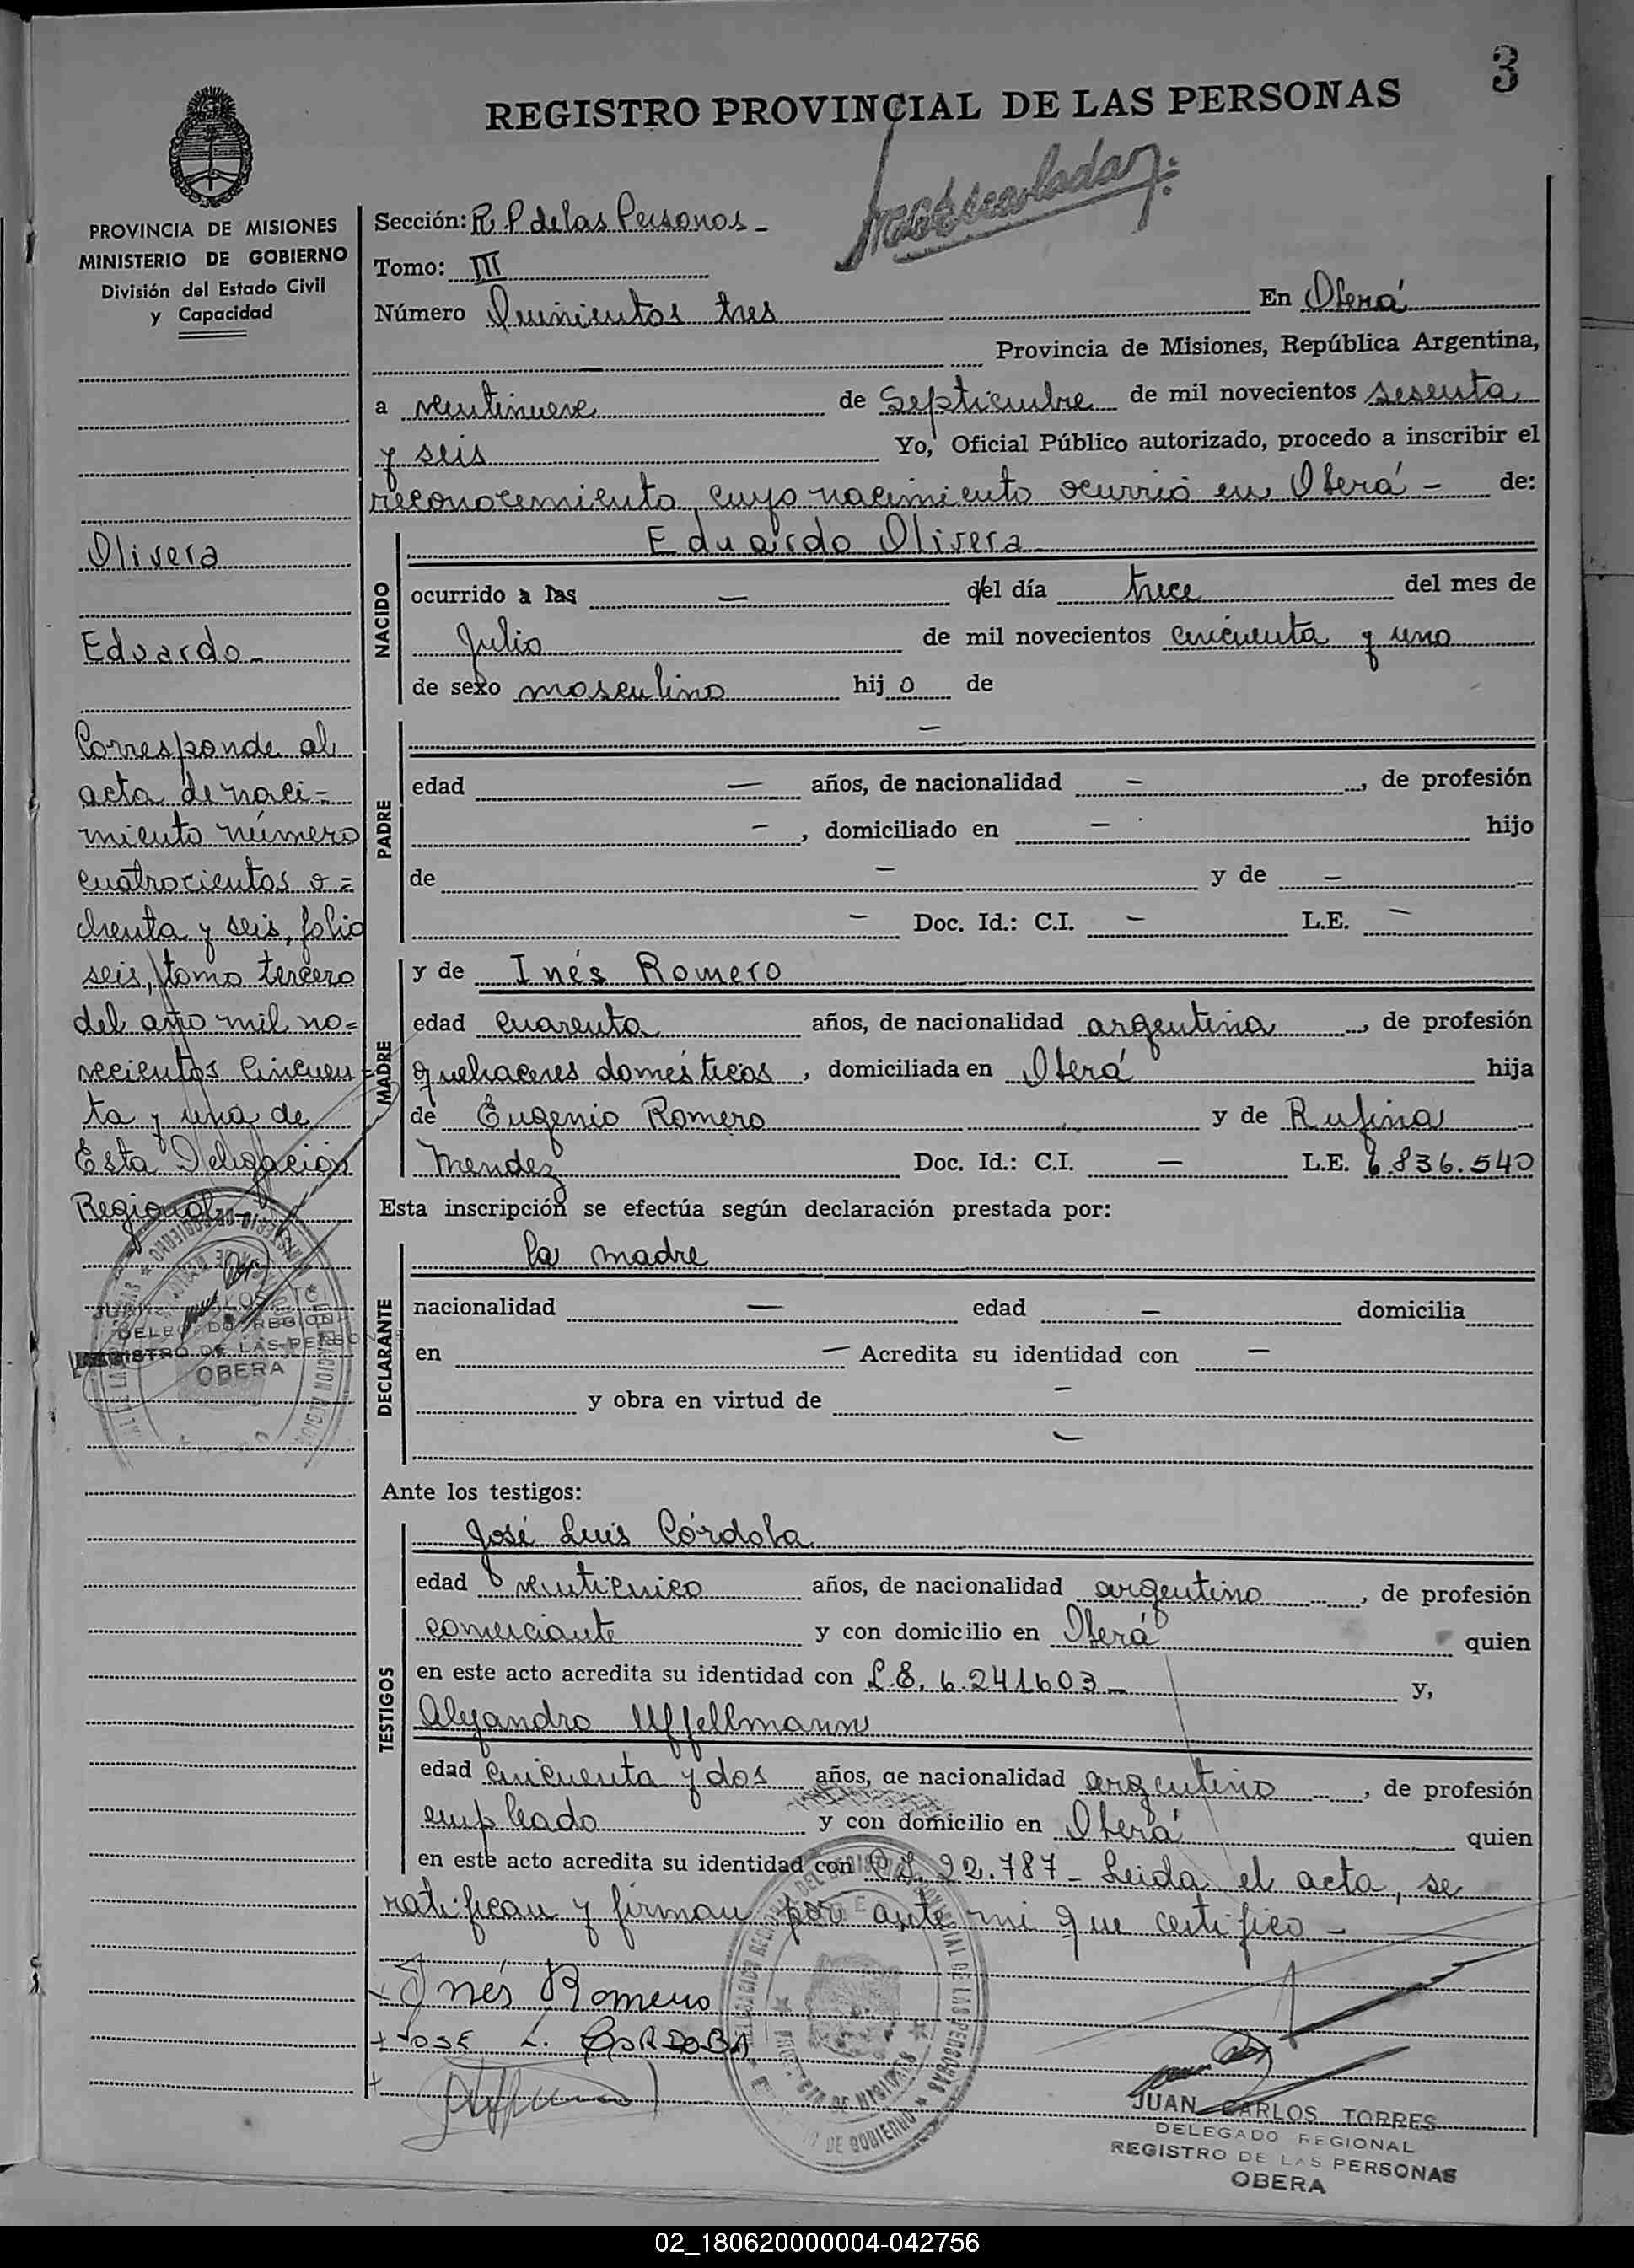 3
REGISTRO PROVINCIAL DE LAS PERSONAS
PROVINCIA DE MISIONES
MINISTERIO DE GOBIERNO
División del Estado Civil
y Capacidad
Olivera
Eduardo
Corresponde al
acta de naci-
miento número
cuatrocientos o=
chenta y seis, folio
seis, tomo tercero
del año mil no=
vecientos cincuen
ta y uno de
Esta Delegación
Regional
DELEGADO REGIONAL
REGISTRO DE LAS PERSO
OBERA
Sección: R. P de las Personas -
Tomo: III
Número Quinientos tres En Oberá
Provincia de Misiones, República Argentina,
a veintinueve de Septiembre de mil novecientos sesenta
y seis Yo, Oficial Público autorizado, procedo a inscribir el
reconocimiento, cuyo nacimiento ocurrió en Oberá - de:
NACIDO
Eduardo Olivera
ocurrido a las — del día trece del mes de
Julio de mil novecientos cincuenta y uno
de sexo masculino hijo de
PADRE
—
edad — años, de nacionalidad — , de profesión
— , domiciliado en — hijo
de — y de —
— Doc. Id.: C.I. — L.E. —
MADRE
y de Inés Romero
edad cuarenta años, de nacionalidad argentina , de profesión
quehaceres domésticos , domiciliada en Oberá hija
de Eugenio Romero y de Rufina
Mendez Doc. Id.: C.I. — L.E. 6.836.540
Esta inscripción se efectúa según declaración prestada por:
DECLARANTE
la madre
nacionalidad — edad — domicilia
en — Acredita su identidad con —
y obra en virtud de —
—
Ante los testigos:
TESTIGOS
José Luis Córdoba
edad veinticinco años, de nacionalidad argentino , de profesión
comerciante y con domicilio en Oberá quien
en este acto acredita su identidad con L.E. 6.241603 - y,
Alejandro Uffellmann
edad cincuenta y dos años, de nacionalidad argentino , de profesión
empleado y con domicilio en Oberá quien
en este acto acredita su identidad con 22.787 - Leida el acta, se
ratifican y firman por ante mi que certifico -
Inés Romero
JOSE L. CORDOBA
JUAN CARLOS TORRES
DELEGADO REGIONAL
REGISTRO DE LAS PERSONAS
OBERA
02_180620000004-042756